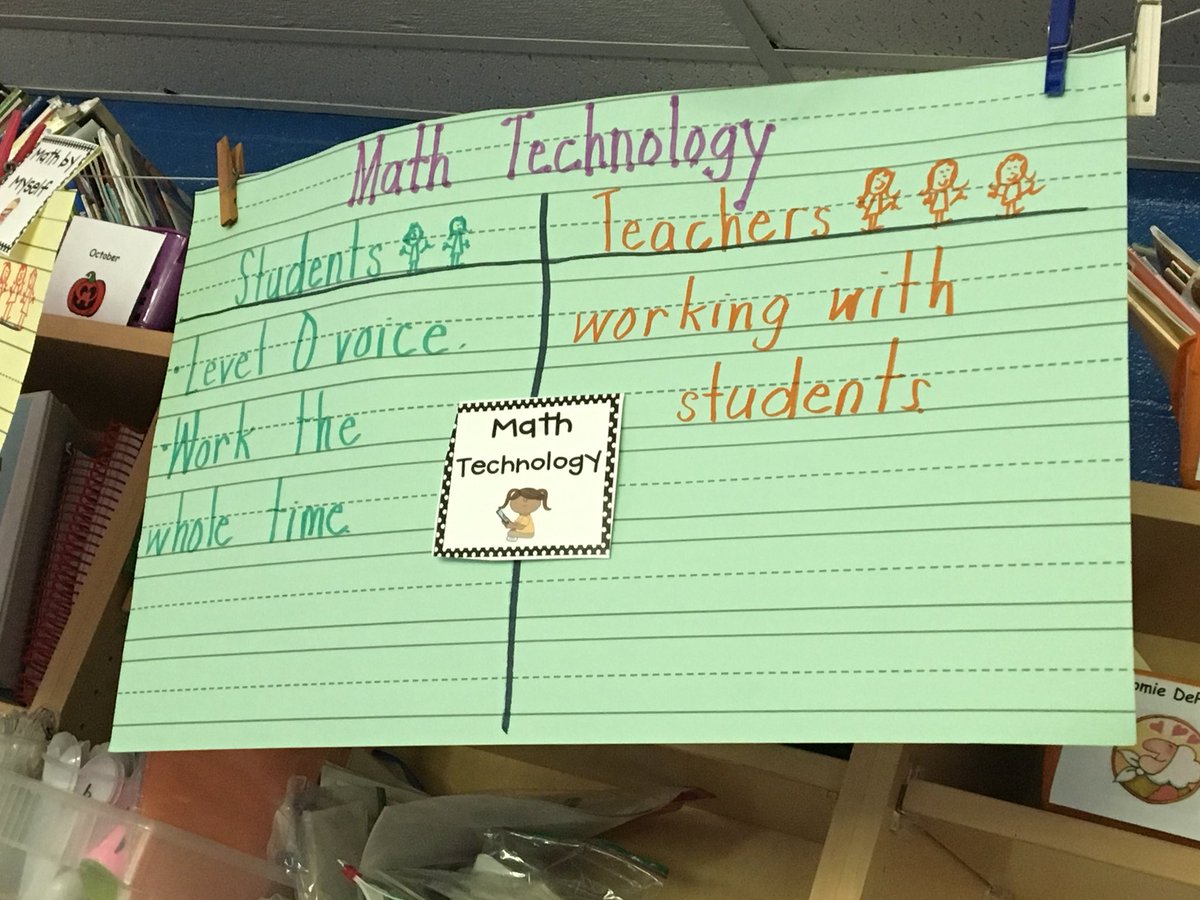 Math Technology
Students
Teachers
• Level 0 voice.
• Work the
whole time
working with
students.
Math
Technology
Math by
Myself
October
omie DeP